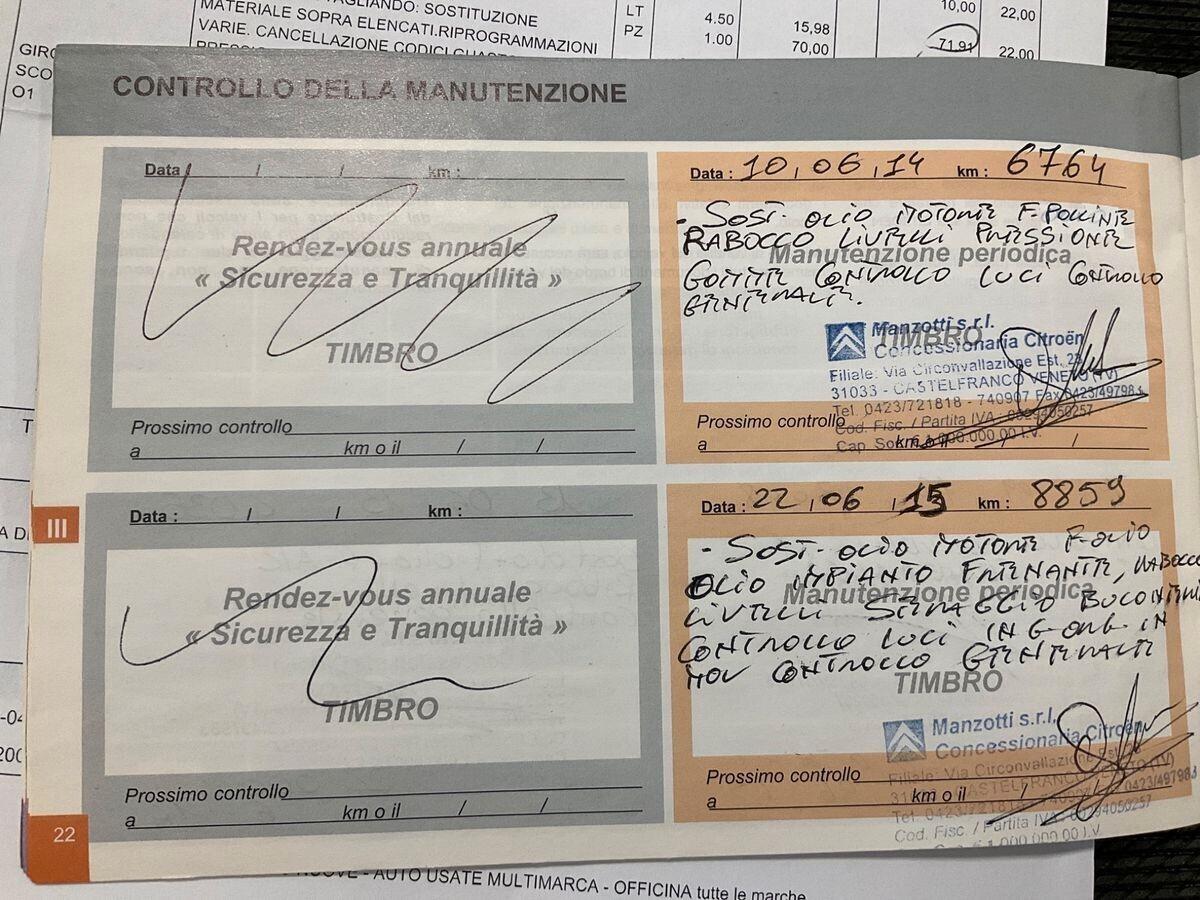 TAGLIANDO: SOSTITUZIONE
MATERIALE SOPRA ELENCATI.RIPROGRAMMAZIONI
VARIE. CANCELLAZIONE CODICI
LT 4.50 15,98 10,00 22,00
PZ 1.00 70,00 71,91 22,00
GIRO
SCO
O1
CONTROLLO DELLA MANUTENZIONE
Data / / km :
Rendez-vous annuale
« Sicurezza e Tranquillità »
TIMBRO
Prossimo controllo
a km o il / /
Data : 10 / 06 / 14 km : 6764
- SOST. OLIO MOTORE F. POLLINE
RABOCCO LIVELLI PRESSIONE
Manutenzione periodica
GOMME CONTROLLO LUCI CONTROLLO
GENERALE.
TIMBRO
Manzotti s.r.l.
Concessionaria Citroën
Filiale: Via Circonvallazione Est, 23
31033 - CASTELFRANCO VENETO (TV)
Tel. 0423/721818 - 740907 Fax 0423/497983
Cod. Fisc. / Partita IVA : 00294050257
Prossimo controllo
a km o il / /
III
Data : / / km :
Rendez-vous annuale
« Sicurezza e Tranquillità »
TIMBRO
Prossimo controllo
a km o il / /
Data : 22 / 06 / 15 km : 8859
- SOST. OLIO MOTORE F. OLIO
OLIO IMPIANTO FRENANTE, RABOCCO
Manutenzione periodica
LIVELLI SERRAGGIO BULLONERIA
CONTROLLO LUCI IN E
MOV CONTROLLO GENERALE
TIMBRO
Manzotti s.r.l.
Concessionaria Citroën
Filiale: Via Circonvallazione Est,
CASTELFRANCO VENETO (TV)
Tel. 0423/721818 0423/497983
Cod. Fisc. / Partita IVA : 00294050257
1.000.000,00 I.V.
Prossimo controllo
a km o il
22
- AUTO USATE MULTIMARCA - OFFICINA tutte le marche